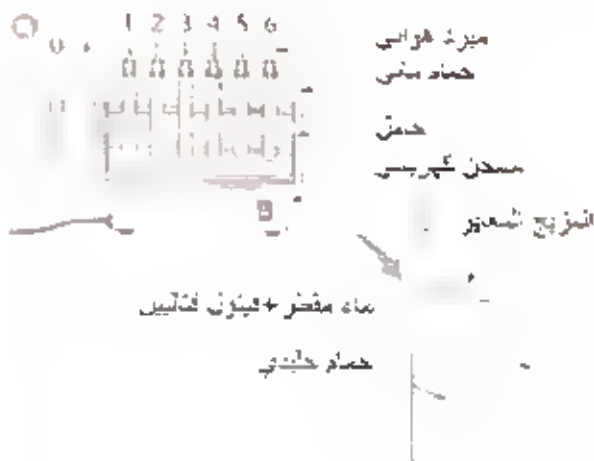 1 2 3 4 5 6
مبرد هوائي
حمام مائي
حمض
مسخن كهربائي
المزيج المحضر
ماء مقطر + فينول فتاليين
حمام جليدي